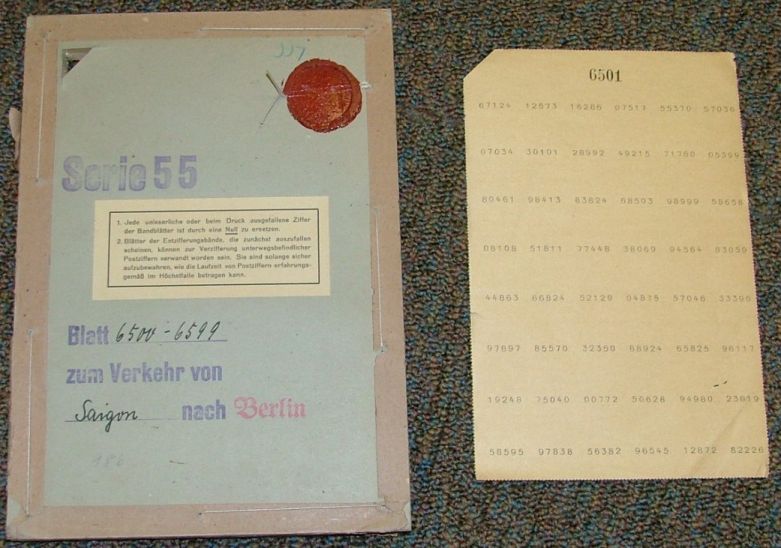 Serie 55
1. Jede unleserliche oder beim Druck ausgefallene Ziffer
der Bandblätter ist durch eine Null zu ersetzen.
2. Blätter der Entzifferungsbände, die zunächst auszufallen
scheinen, können zur Verzifferung unterwegsbefindlicher
Postziffern verwandt worden sein. Sie sind solange sicher
aufzubewahren, wie die Laufzeit von Postziffern erfahrungs-
gemäß im Höchstfalle betragen kann.
Blatt 6500-6599
zum Verkehr von
Saigon nach Berlin
186
6501
67124 12573 16286 07517 55370 57036
07034 30101 28992 49215 71760 05399
80461 98413 83824 68503 98999 58658
08108 51811 77448 38069 94564 83059
44863 66824 52129 04875 57046 33396
97897 85570 32350 88924 65825 96117
19248 75040 00772 50628 94980 23819
58595 97838 56382 96545 12872 82226